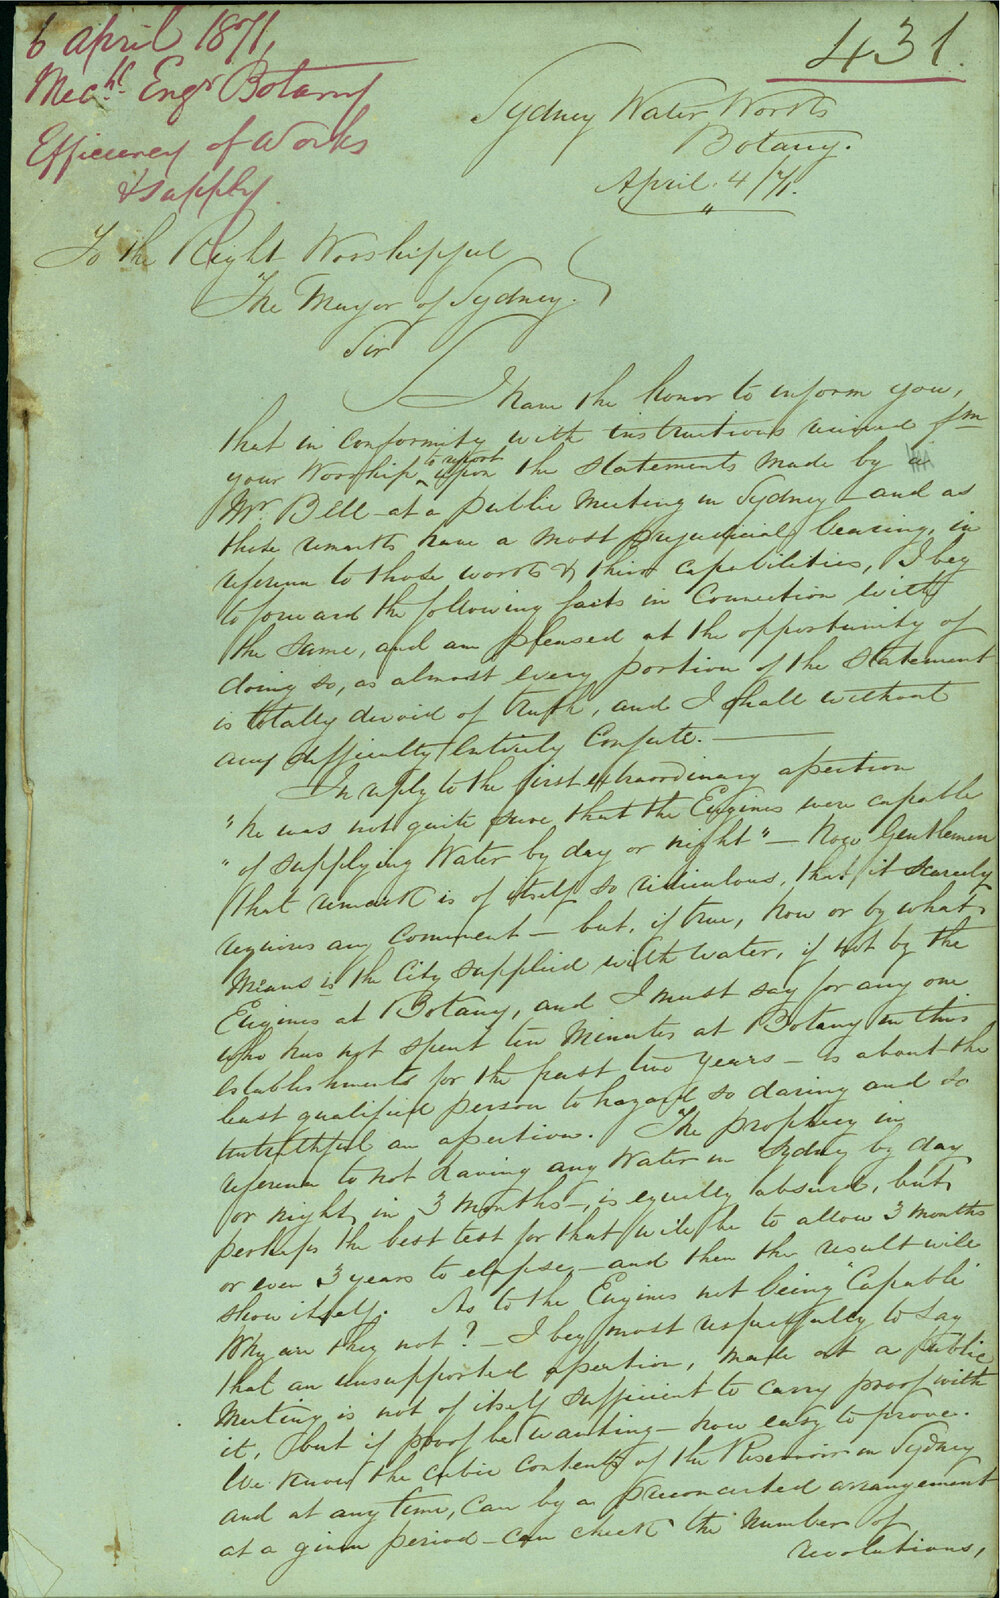 6 April 1871,
Mechl. Engr Botany
Efficiency of Works
& supply.
431.
Sydney Water Works
Botany.
April. 4/71.
To the Right Worshipful
The Mayor of Sydney.
Sir
I have the honor to inform you,
that in conformity with instructions received fm
your Worship to report upon the statements made by a
Mr. Bell at a public meeting in Sydney - and as
these remarks have a most prejudicial bearing, in
reference to those works & their capabilities, I beg
to forward the following facts in Connection with
the same, and am pleased at the opportunity of
doing so, as almost every portion of the statement
is totally devoid of truth, and I shall without
any difficulty Entirely Confute.
In reply to the first extraordinary assertion
"he was not quite sure that the Engines were capable
"of supplying Water by day or night" - Now Gentlemen
that remark is of itself so ridiculous, that it scarcely
requires any comment - but, if true, how or by what
Means is the City supplied with water, if not by the
Engines at Botany, and I must say for any one
who has not spent ten Minutes at Botany in this
establishments for the past two years - is about the
least qualified person to hazard so daring and so
untruthful an assertion. The prophecy in
reference to not having any Water in Sydney by day
or night, in 3 months -, is equally absurd, but
perhaps the best test for that will be to allow 3 months
or even 3 years to elapse - and then the result will
show itself. As to the Engines not being "Capable"
Why are they not? - I beg most respectfully to say
that an unsupported assertion, made at a public
Meeting is not of itself sufficient to carry proof with
it, but if proof be wanting - how easy to prove.
We know the cubic contents of the Reservoir in Sydney
and at any time, can by a preconcerted arrangement
at a given period - can check the number of
revolutions,